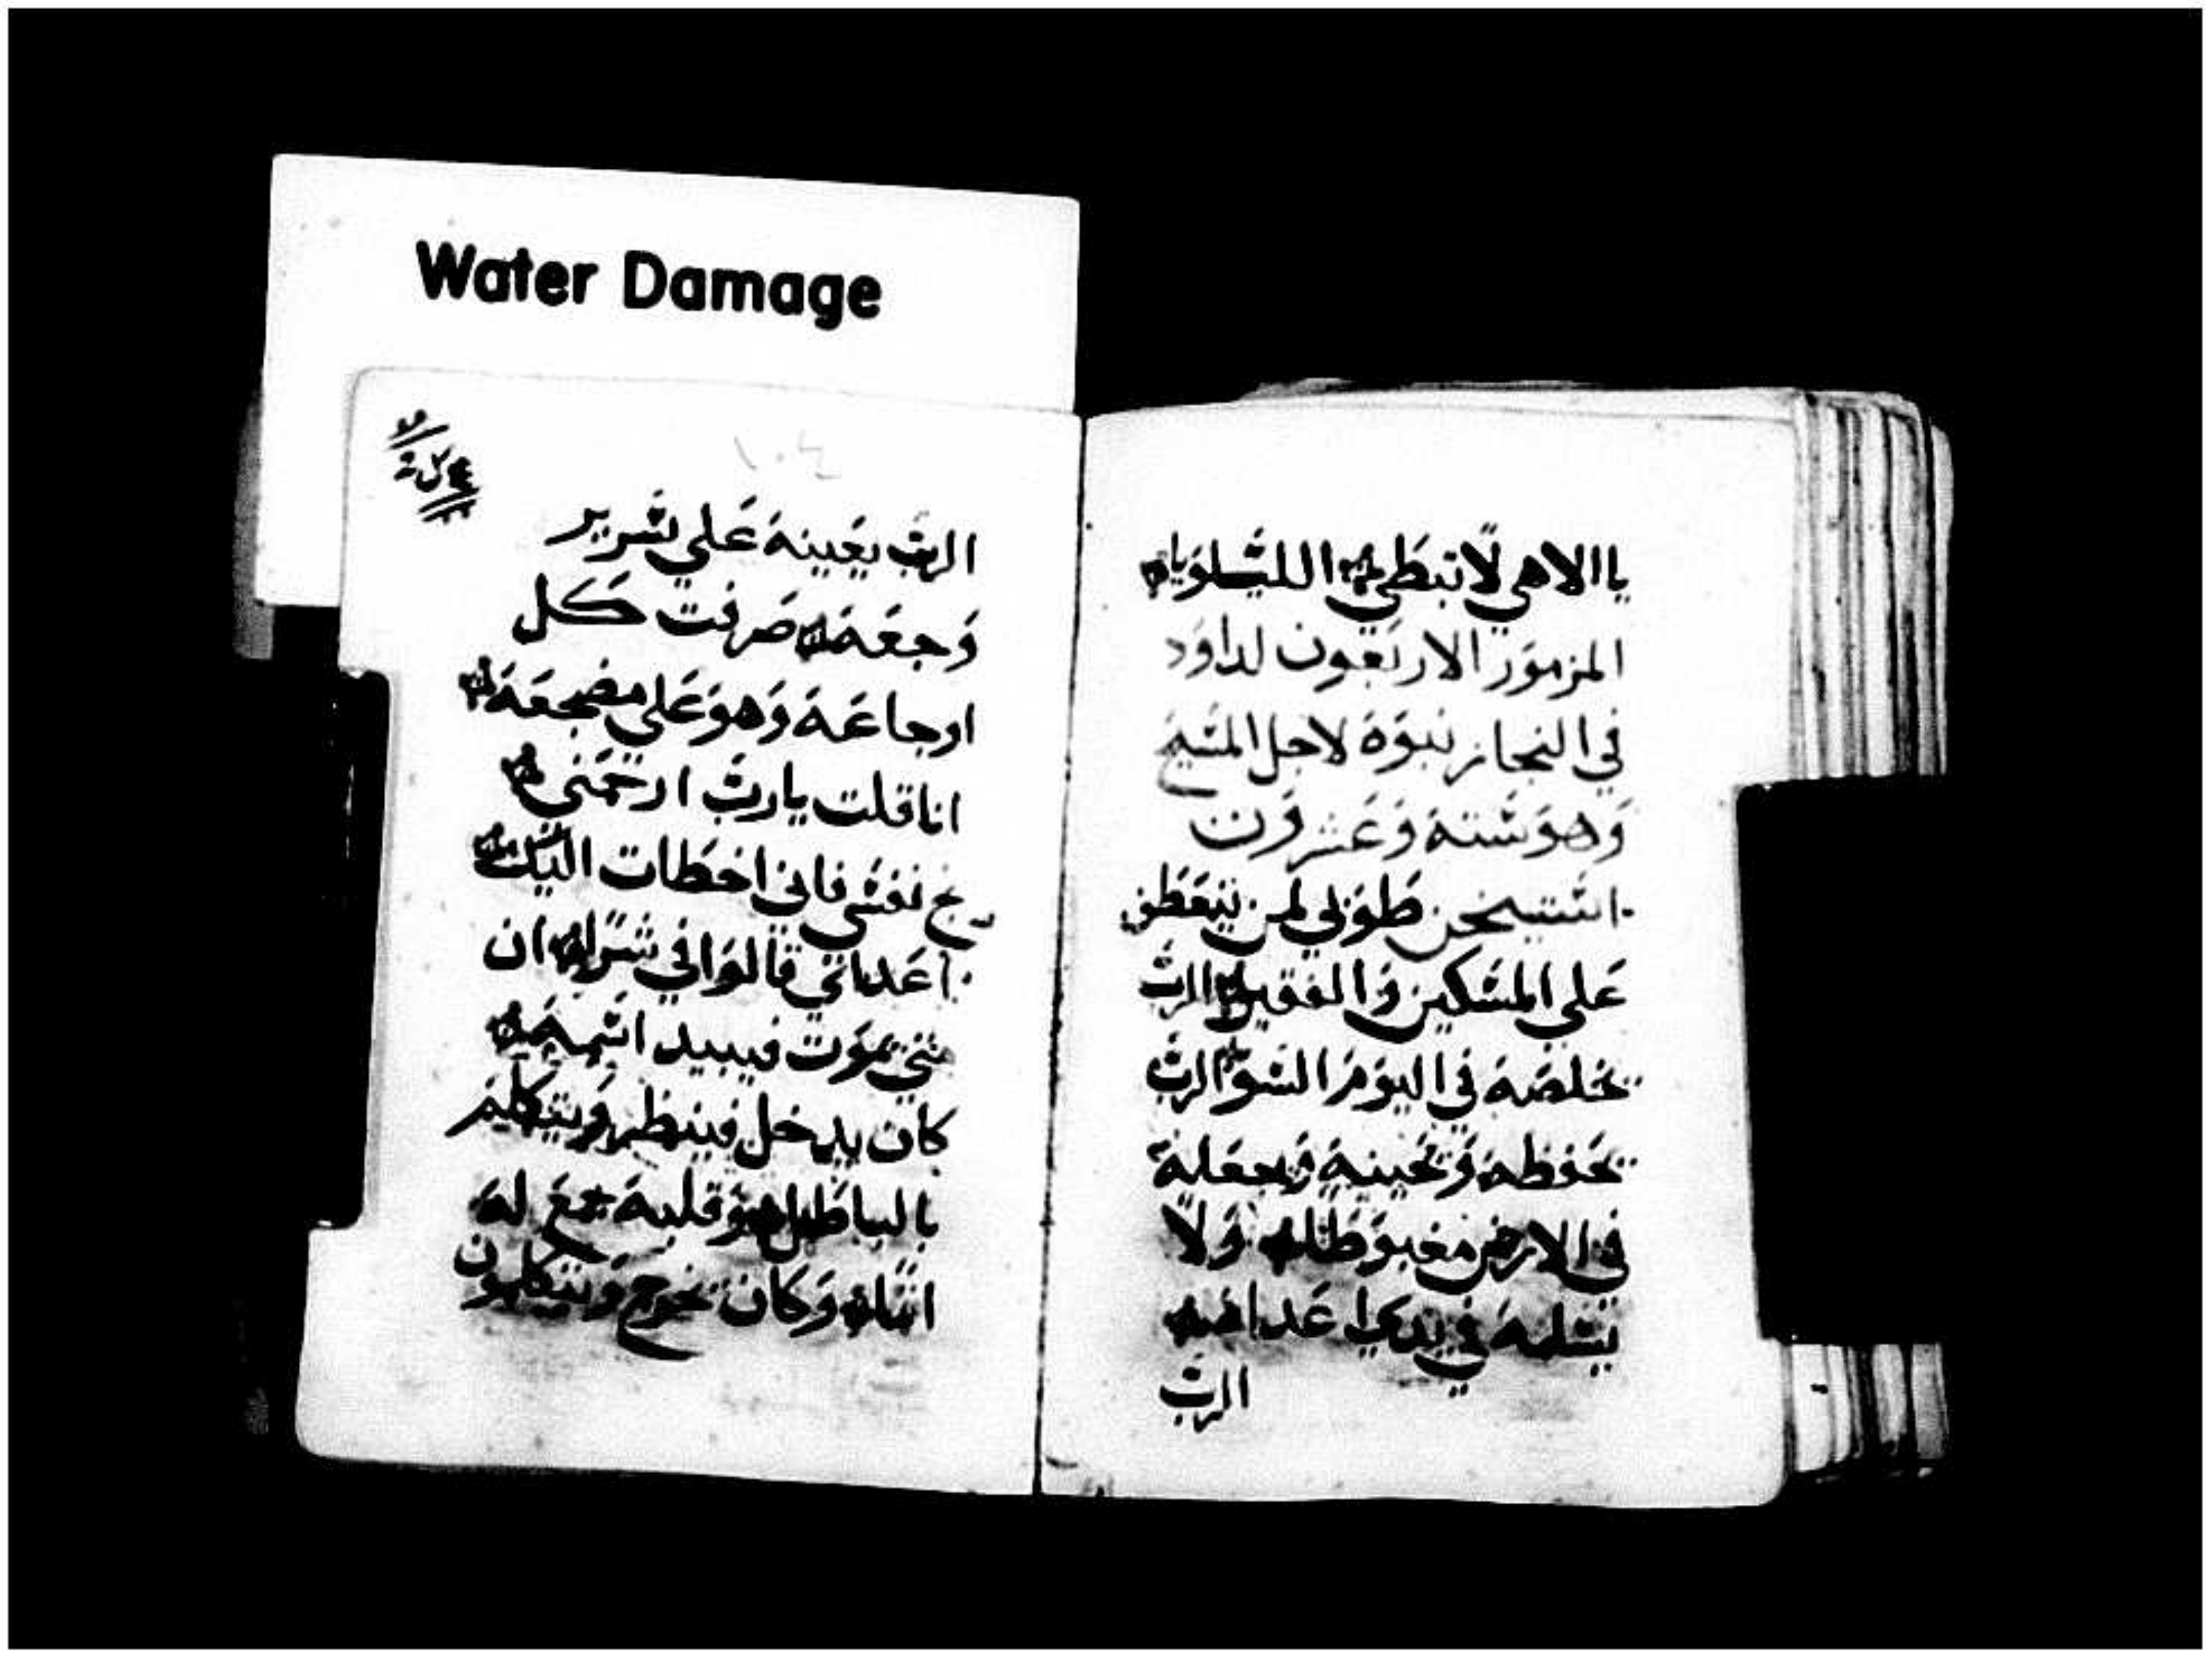 Water Damage
يا الاهي لا تبطي الليلويا
المزمور الاربعون لداود
في النجاز نبوة لاجل المسيح
وهو ستة وعشرون
استيخن طوبي لمن يتعطف
علي المسكين والفقير الرب
يخلصه في اليوم السو الرب
يحفظه ويحيينه ويجعله
في الارض مغبوطا ولا
يسلمه في يدي اعدايه
الرب
١٠٤
الرب يعينه علي سرير
وجعه صرفت كل
اوجاعه وهو علي مضجعه
انا قلت يارب ارحمني
نفسي فاني اخطات اليك
اعداي قالوا في شرا ان
متي يموت فيبيد اسمه
كان يدخل فينظر ويتكلم
بالباطل وقلبه جمع له
اثما وكان يخرج ويتكلمون